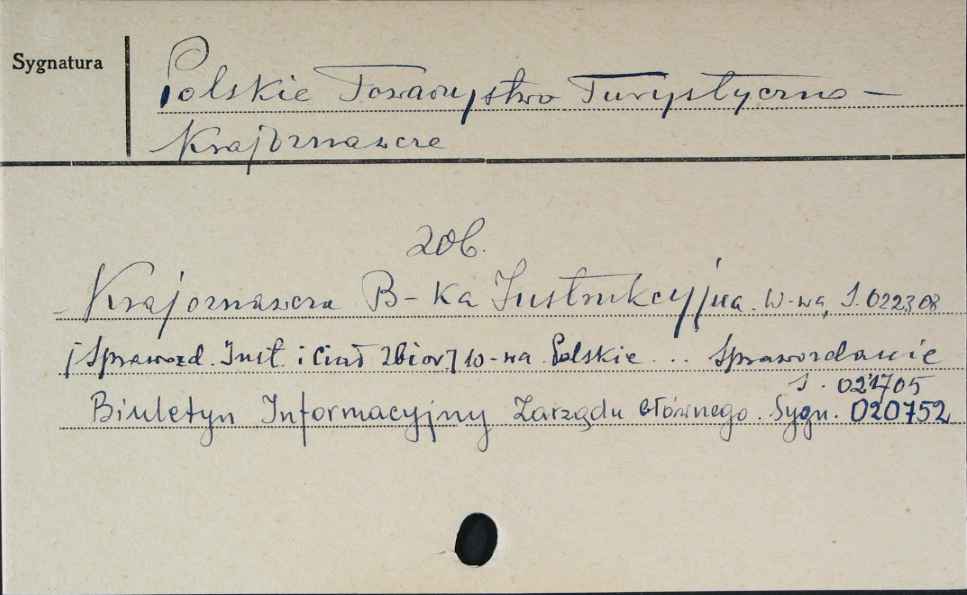 Sygnatura
Polskie Towarzystwo Turystyczno -
Krajoznawcze
Zob.
Krajoznawcza B-ka Instrukcyjna. W-wa, S. 022308
[Sprawozd. Inst. i Ciał Zbior.] To-wa Polskie ... Sprawozdanie
S. 021705
Biuletyn Informacyjny Zarządu Głównego. Sygn. 020752